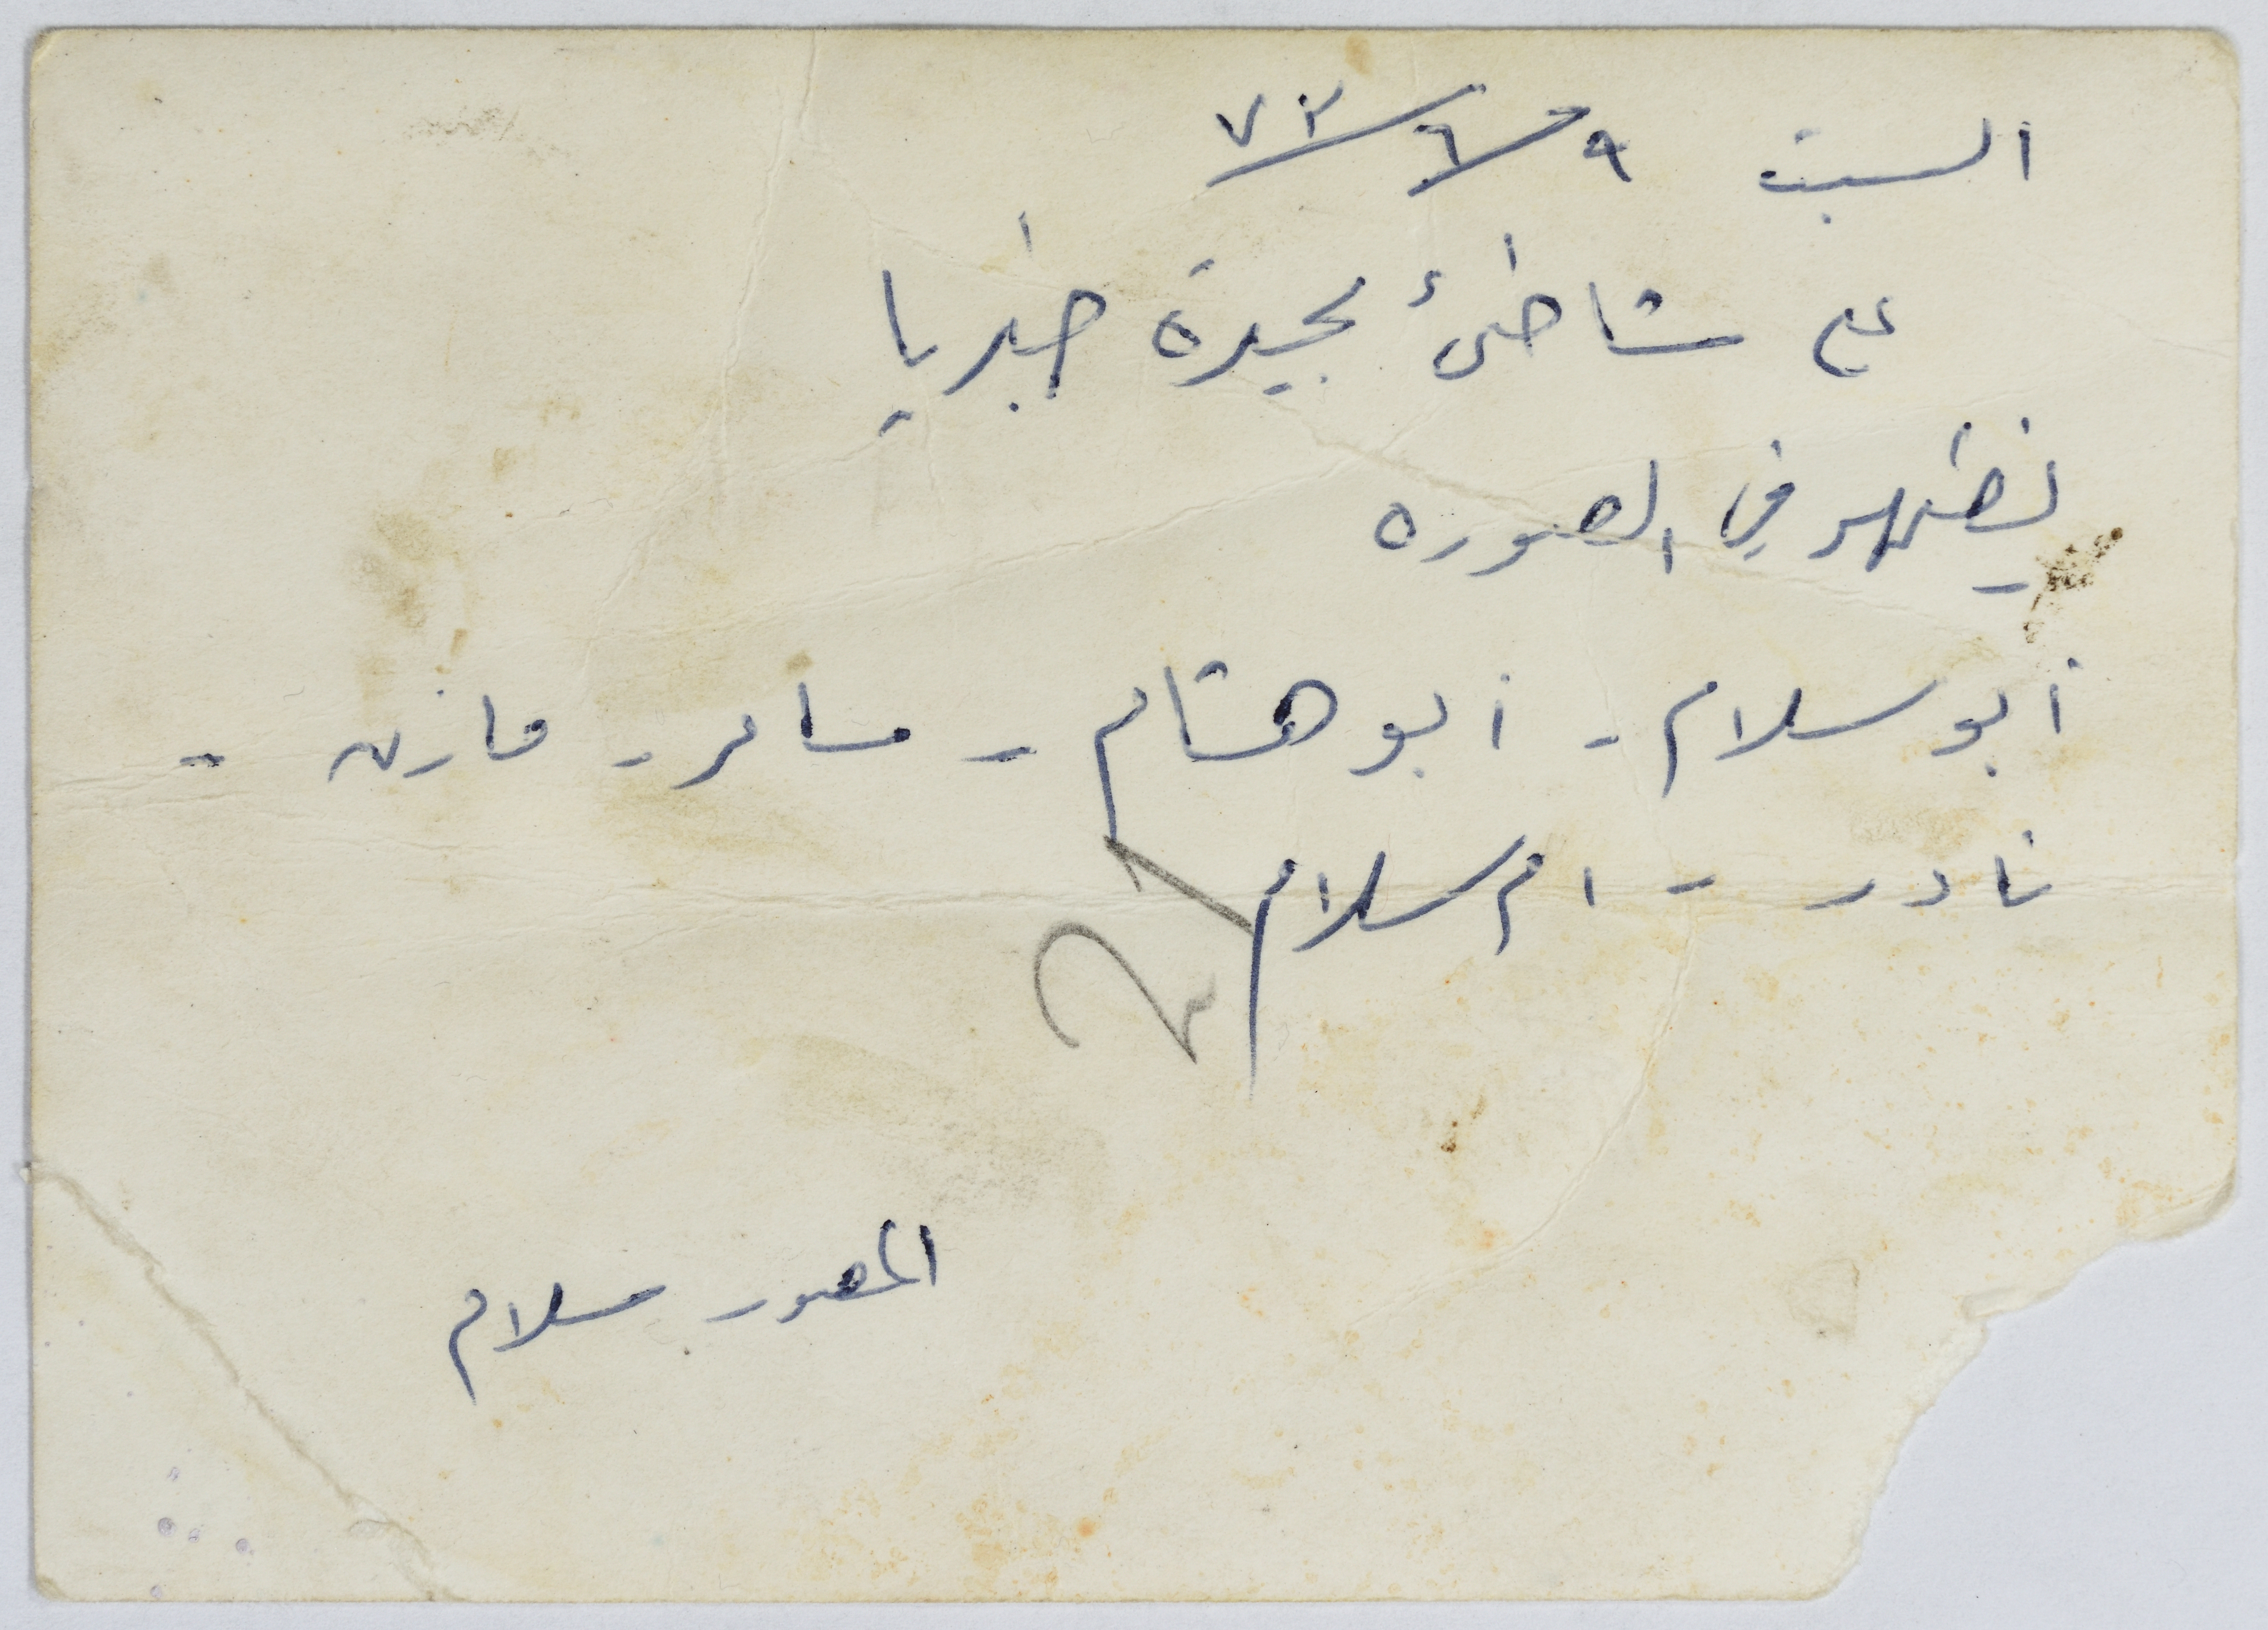 السبت ٩/٦/٧٣
على شاطئ بحيرة طبريا
يظهر في الصوره
أبو سلام - أبو هشام - سامر - مازن -
نادر - ام سلام
المصور سلام